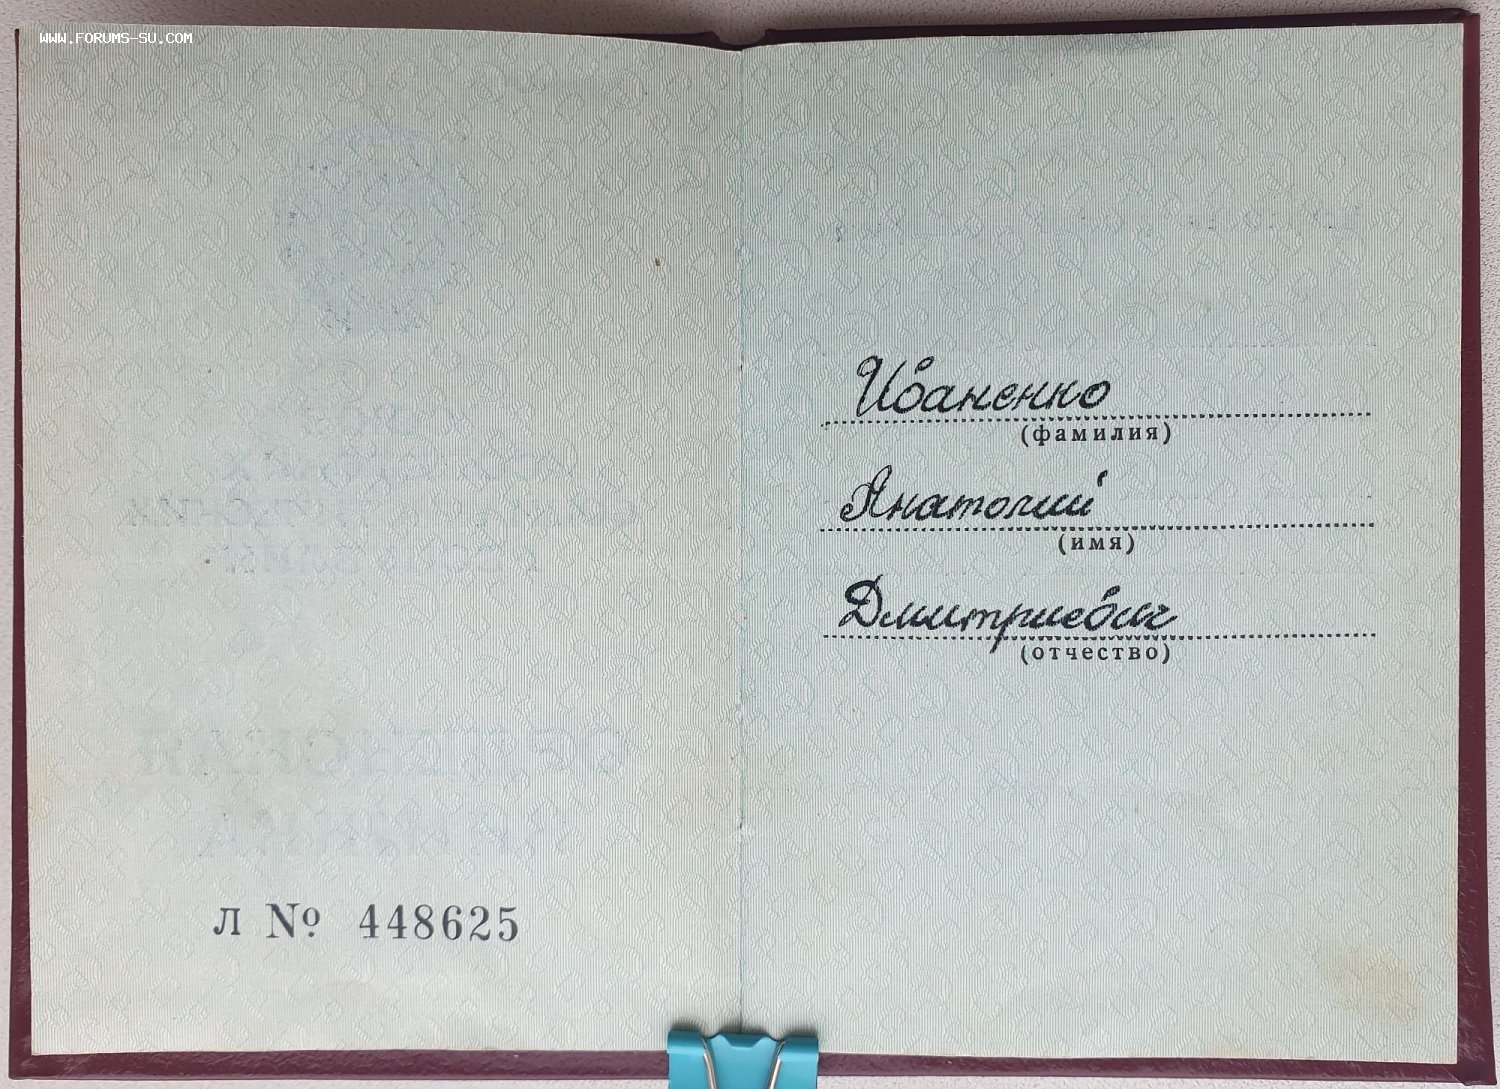 WWW.FORUMS-SU.COM
Л № 448625
Иваненко
(фамилия)
Анатолий
(имя)
Дмитриевич
(отчество)